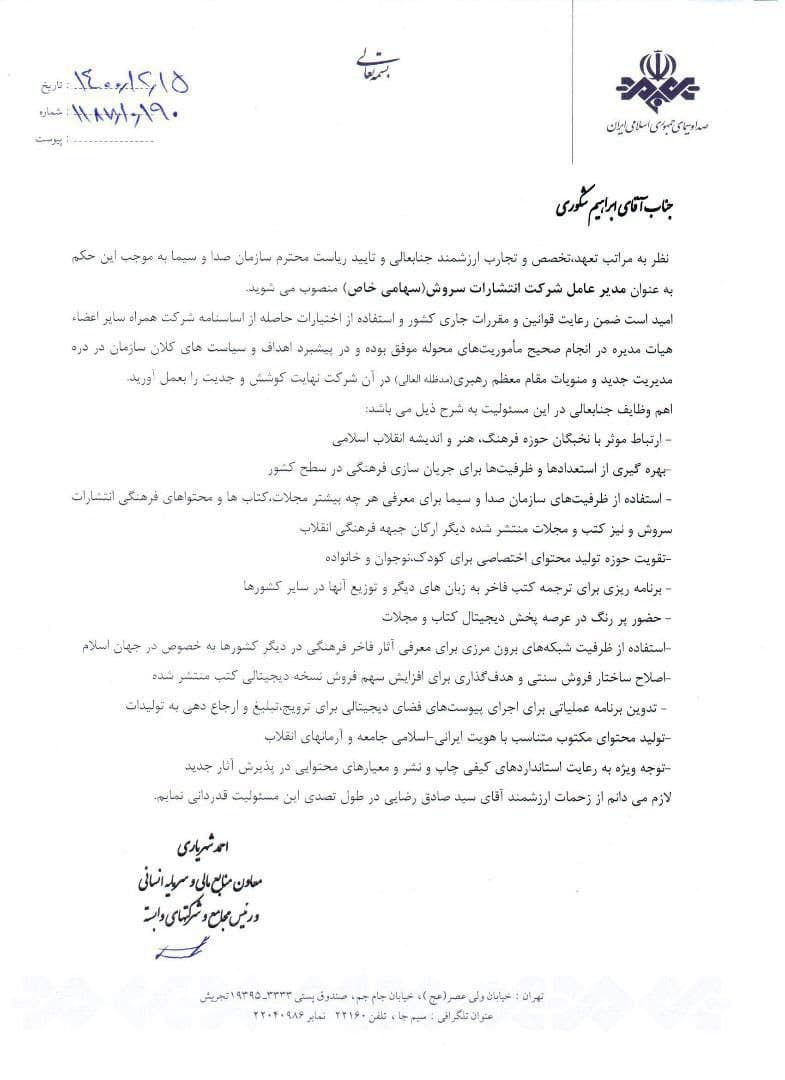 بسمه تعالی
صدا و سیمای جمهوری اسلامی ایران
تاریخ : ۱۴۰۰/۲/۱۵
شماره :
پیوست :
جناب آقای ابراهیم شکوری
نظر به مراتب تعهد،تخصص و تجارب ارزشمند جنابعالی و تایید ریاست محترم سازمان صدا و سیما به موجب این حکم
به عنوان مدیر عامل شرکت انتشارات سروش(سهامی خاص) منصوب می شوید.
امید است ضمن رعایت قوانین و مقررات جاری کشور و استفاده از اختیارات حاصله از اساسنامه شرکت همراه سایر اعضاء
هیات مدیره در انجام صحیح مأموریت‌های محوله موفق بوده و در پیشبرد اهداف و سیاست های کلان سازمان در دره
مدیریت جدید و منویات مقام معظم رهبری(مدظله العالی) در آن شرکت نهایت کوشش و جدیت را بعمل آورید.
اهم وظایف جنابعالی در این مسئولیت به شرح ذیل می باشد:
- ارتباط موثر با نخبگان حوزه فرهنگ، هنر و اندیشه انقلاب اسلامی
-بهره گیری از استعدادها و ظرفیت‌ها برای جریان سازی فرهنگی در سطح کشور
- استفاده از ظرفیت‌های سازمان صدا و سیما برای معرفی هر چه پیشتر مجلات،کتاب ها و محتواهای فرهنگی انتشارات
سروش و نیز کتب و مجلات منتشر شده دیگر ارکان جبهه فرهنگی انقلاب
-تقویت حوزه تولید محتوای اختصاصی برای کودک،نوجوان و خانواده
- برنامه ریزی برای ترجمه کتب فاخر به زبان های دیگر و توزیع آنها در سایر کشورها
- حضور پر رنگ در عرصه پخش دیجیتال کتاب و مجلات
-استفاده از ظرفیت شبکه‌های برون مرزی برای معرفی آثار فاخر فرهنگی در دیگر کشورها به خصوص در جهان اسلام
-اصلاح ساختار فروش سنتی و هدف‌گذاری برای افزایش سهم فروش نسخه دیجیتالی کتب منتشر شده
- تدوین برنامه عملیاتی برای اجرای پیوست‌های فضای دیجیتالی برای ترویج،تبلیغ و ارجاع دهی به تولیدات
-تولید محتوای مکتوب متناسب با هویت ایرانی-اسلامی جامعه و آرمانهای انقلاب
-توجه ویژه به رعایت استانداردهای کیفی چاپ و نشر و معیارهای محتوایی در پذیرش آثار جدید
لازم می دانم از زحمات ارزشمند آقای سید صادق رضایی در طول تصدی این مسئولیت قدردانی نمایم.
احمد شهریاری
معاون منابع مالی و سرمایه انسانی
و رئیس مجامع و شرکتهای وابسته
تهران : خیابان ولی عصر(عج )، خیابان جام جم، صندوق پستی ۳۳۳۳ـ۱۹۳۹۵ تجریش
عنوان تلگرافی : سیم جا ، تلفن ۲۲۱۶۰ نمابر ۲۲۰۴۰۹۸۶